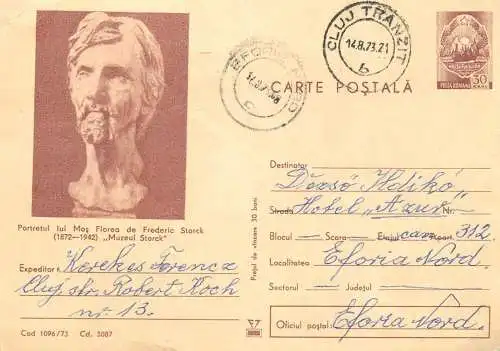 CLUJ TRANZIT
14.8.73.21
b
EFORIE NORD
c
POSTA ROMANA
50
CARTE POȘTALĂ
Portretul lui Moș Florea de Frederic Storck
(1872—1942) „Muzeul Storck"
Expeditor: Kerekes Ferencz
Cluj, str. Robert Koch
nr. 13.
Cod 1096/73 Cd. 5087
Prețul de vînzare 50 bani
Destinatar
Dezső Ildikó
Strada Hotel „Azur" Nr.
Blocul — Scara — Etajul cam. Apart. 312
Localitatea Eforia Nord
Sectorul — Județul
Oficiul poștal: Eforia Nord.